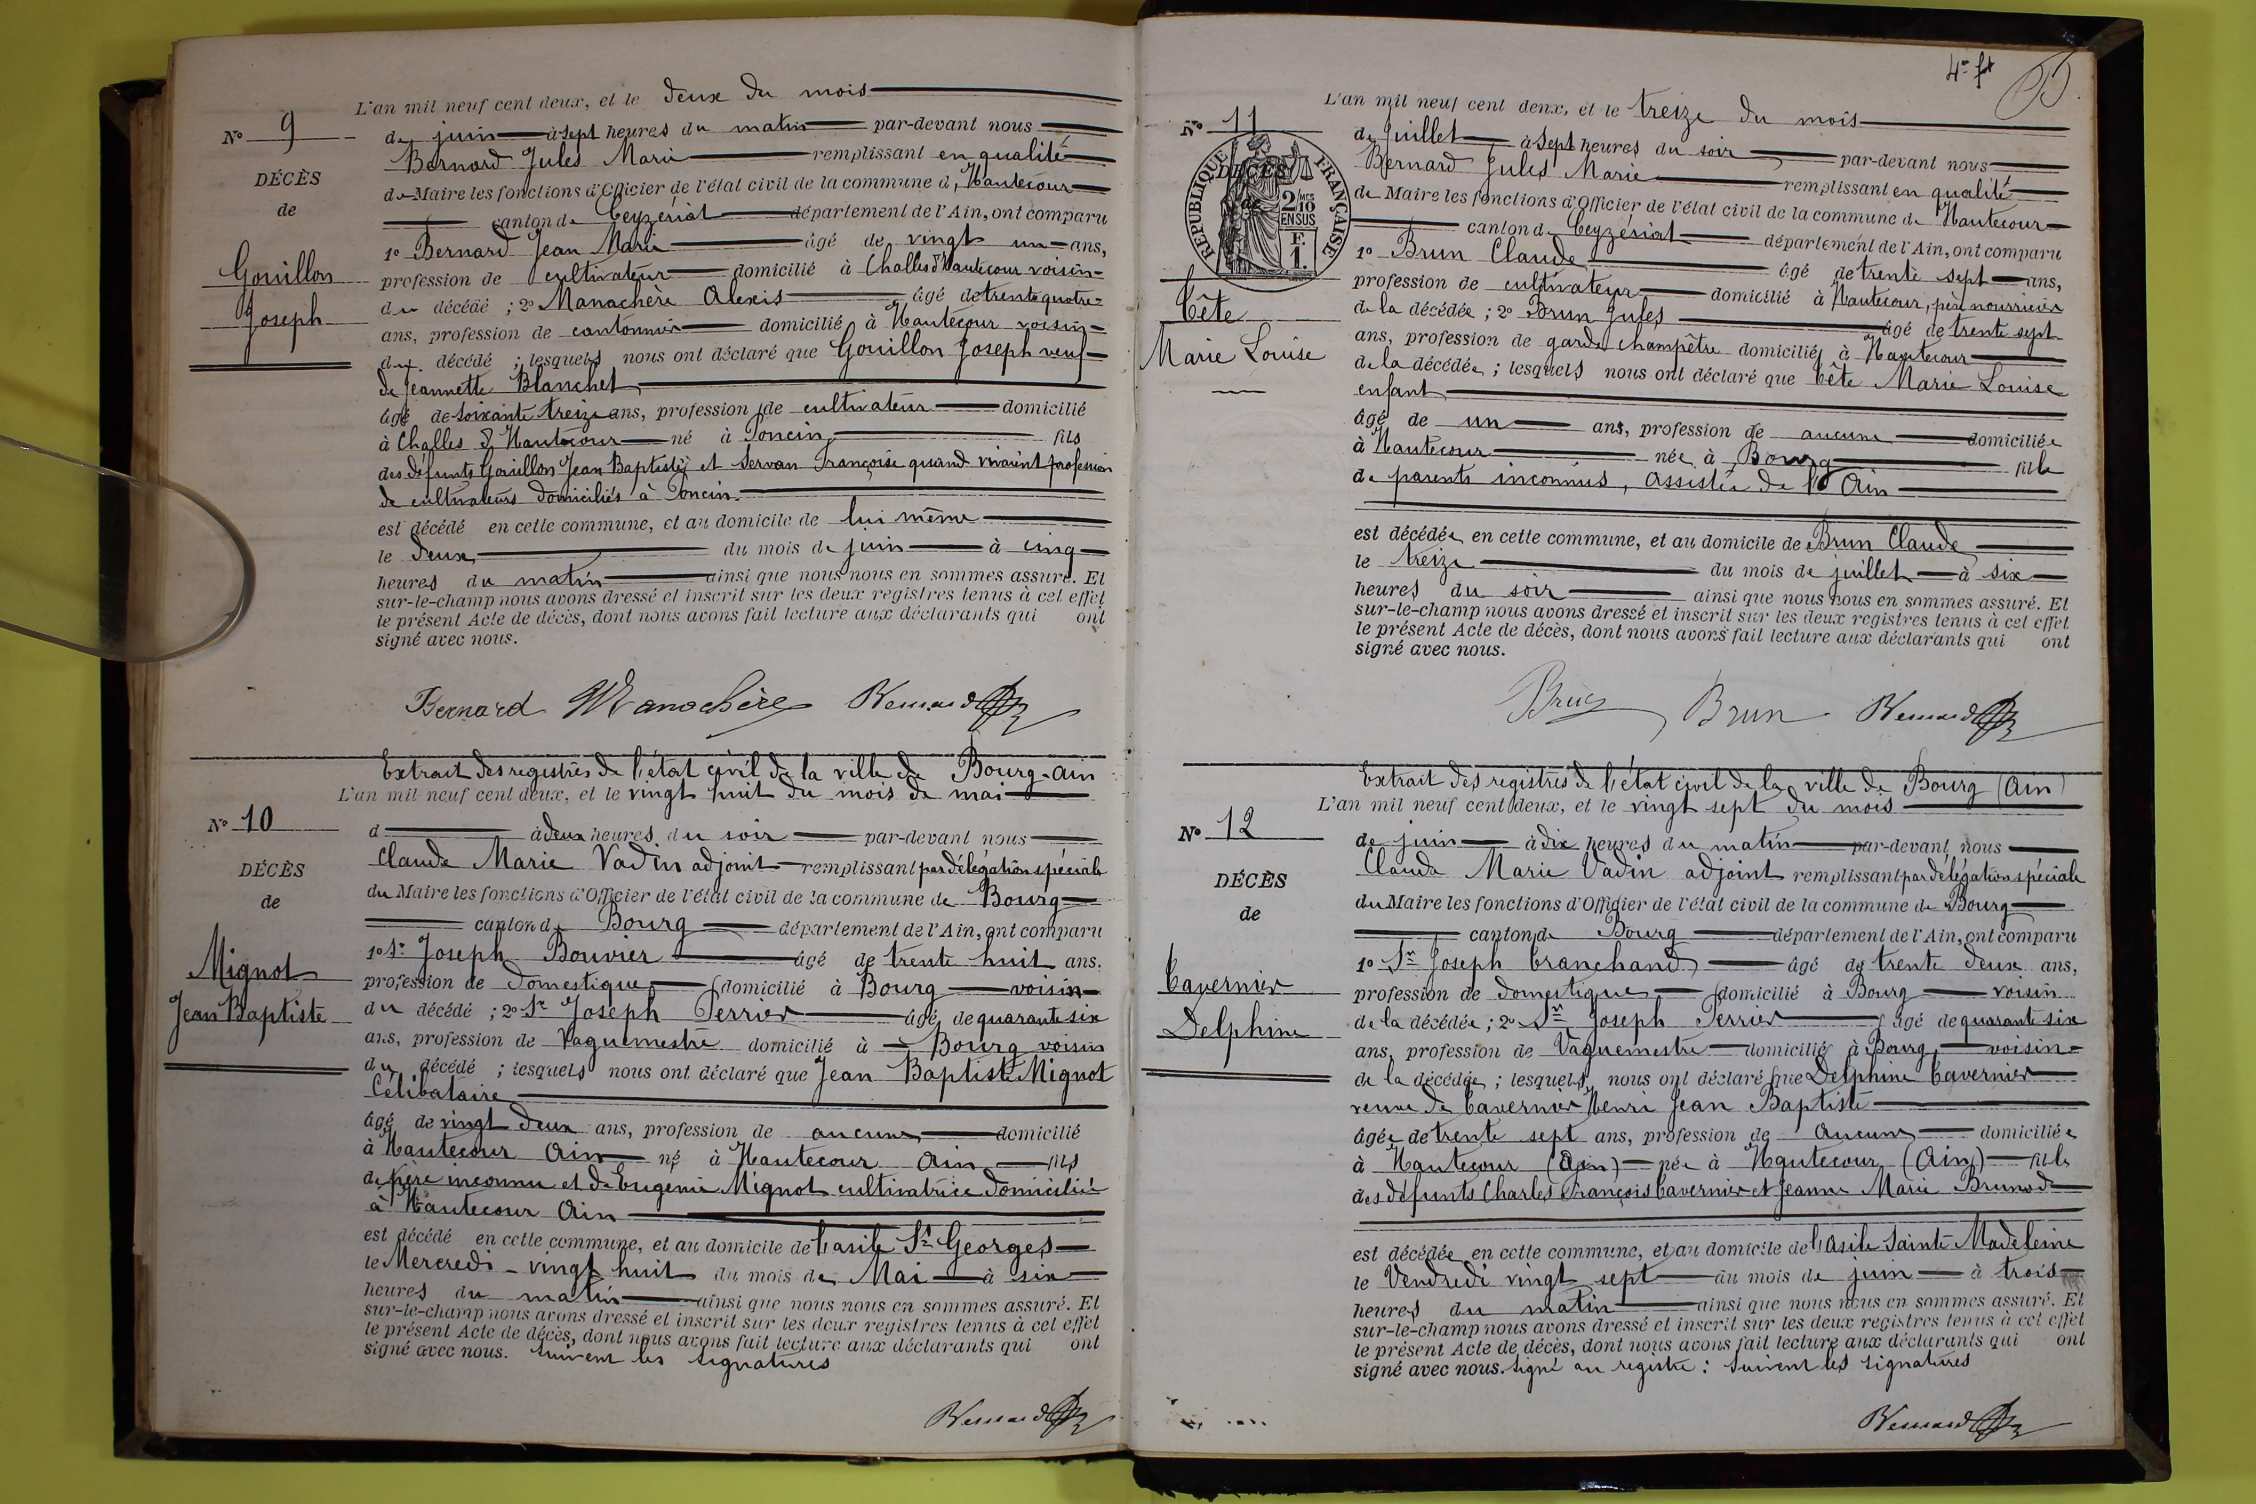 L'an mil neuf cent deux, et le deux du mois
N° 9
de juin à sept heures du matin par-devant nous
Bernard Jules Marie remplissant en qualité
DÉCÈS
de Maire les fonctions d'Officier de l'état civil de la commune d'Hautecour
de
canton de Ceyzériat département de l'Ain, ont comparu
1° Bernard Jean Marie âgé de vingt un ans,
Gouillon
profession de cultivateur domicilié à Challes d'Hautecour voisin
du décédé ; 2° Manachère Alexis âgé de trente quatre
Joseph
ans, profession de cantonnier domicilié à Hautecour voisin
du décédé ; lesquels nous ont déclaré que Gouillon Joseph veuf
de Jeannette Blanchet
âgé de soixante treize ans, profession de cultivateur domicilié
à Challes d'Hautecour né à Poncin fils
des défunts Gouillon Jean Baptiste et Servan Françoise quand vivaient profession
de cultivateurs domiciliés à Poncin.
est décédé en cette commune, et au domicile de lui même
le deux du mois de juin à cinq
heures du matin ainsi que nous nous en sommes assuré. Et
sur-le-champ nous avons dressé et inscrit sur les deux registres tenus à cet effet
le présent Acte de décès, dont nous avons fait lecture aux déclarants qui ont
signé avec nous.
Bernard Manachère Bernard
Extrait des registres de l'état civil de la ville de Bourg-Ain
L'an mil neuf cent deux, et le vingt huit du mois de mai
N° 10
d à deux heures du soir par-devant nous
Claude Marie Vadin adjoint remplissant par délégation spéciale
DÉCÈS
du Maire les fonctions d'Officier de l'état civil de la commune de Bourg
de
canton de Bourg département de l'Ain, ont comparu
1° Sr Joseph Bouvier âgé de trente huit ans.
Mignot
profession de domestique domicilié à Bourg voisin
Jean Baptiste
du décédé ; 2° Sr Joseph Perrier âgé de quarante six
ans, profession de Vaguemestre domicilié à Bourg voisin
du décédé ; lesquels nous ont déclaré que Jean Baptiste Mignot
Célibataire
âgé de vingt deux ans, profession de aucune domicilié
à Hautecour Ain né à Hautecour Ain fils
de père inconnu et de Eugenie Mignot cultivatrice domiciliée
à Hautecour Ain
est décédé en cette commune, et au domicile de l'asile St Georges
le Mercredi vingt huit du mois de Mai à six
heures du matin ainsi que nous nous en sommes assuré. Et
sur-le-champ nous avons dressé et inscrit sur les deux registres tenus à cet effet
le présent Acte de décès, dont nous avons fait lecture aux déclarants qui ont
signé avec nous. suivent les signatures
Bernard
4e ft
L'an mil neuf cent deux, et le treize du mois
N° 11
de Juillet à sept heures du soir par-devant nous
Bernard Jules Marie remplissant en qualité
RÉPUBLIQUE FRANÇAISE
DÉCÈS
de
2/10 MES
EN SUS
F.
1.
de Maire les fonctions d'Officier de l'état civil de la commune de Hautecour
canton de Ceyzériat département de l'Ain, ont comparu
1° Brun Claude âgé de trente sept ans,
profession de cultivateur domicilié à Hautecour, père nourricier
Tête
de la décédée ; 2° Brun Jules âgé de trente sept
Marie Louise
ans, profession de garde champêtre domicilié à Hautecour
de la décédée ; lesquels nous ont déclaré que Tête Marie Louise
enfant
âgé de un ans, profession de aucune domiciliée
à Hautecour née à Bourg fille
de parents inconnus, assistée de l'Ain
est décédée en cette commune, et au domicile de Brun Claude
le treize du mois de juillet à six
heures du soir ainsi que nous nous en sommes assuré. Et
sur-le-champ nous avons dressé et inscrit sur les deux registres tenus à cet effet
le présent Acte de décès, dont nous avons fait lecture aux déclarants qui ont
signé avec nous.
Brun Brun Bernard
Extrait des registres de l'état civil de la ville de Bourg (Ain)
L'an mil neuf cent deux, et le vingt sept du mois
N° 12
de juin à dix heures du matin par-devant nous
Claude Marie Vadin adjoint remplissant par délégation spéciale
DÉCÈS
du Maire les fonctions d'Officier de l'état civil de la commune de Bourg
de
canton de Bourg département de l'Ain, ont comparu
1° Sr Joseph Tranchand âgé de trente deux ans,
Tavernier
profession de domestique domicilié à Bourg voisin
Delphine
de la décédée ; 2° Sr Joseph Perrier âgé de quarante six
ans, profession de Vaguemestre domicilié à Bourg voisin
de la décédée ; lesquels nous ont déclaré que Delphine Tavernier
veuve de Tavernier Henri Jean Baptiste
âgée de trente sept ans, profession de Aucune domiciliée
à Hautecour (Ain) née à Hautecour (Ain) fille
des défunts Charles François Tavernier et Jeanne Marie Brunod
est décédée en cette commune, et au domicile de l'Asile Sainte Madeleine
le Vendredi vingt sept du mois de juin à trois
heures du matin ainsi que nous nous en sommes assuré. Et
sur-le-champ nous avons dressé et inscrit sur les deux registres tenus à cet effet
le présent Acte de décès, dont nous avons fait lecture aux déclarants qui ont
signé avec nous. signé au registre : suivent les signatures
Bernard